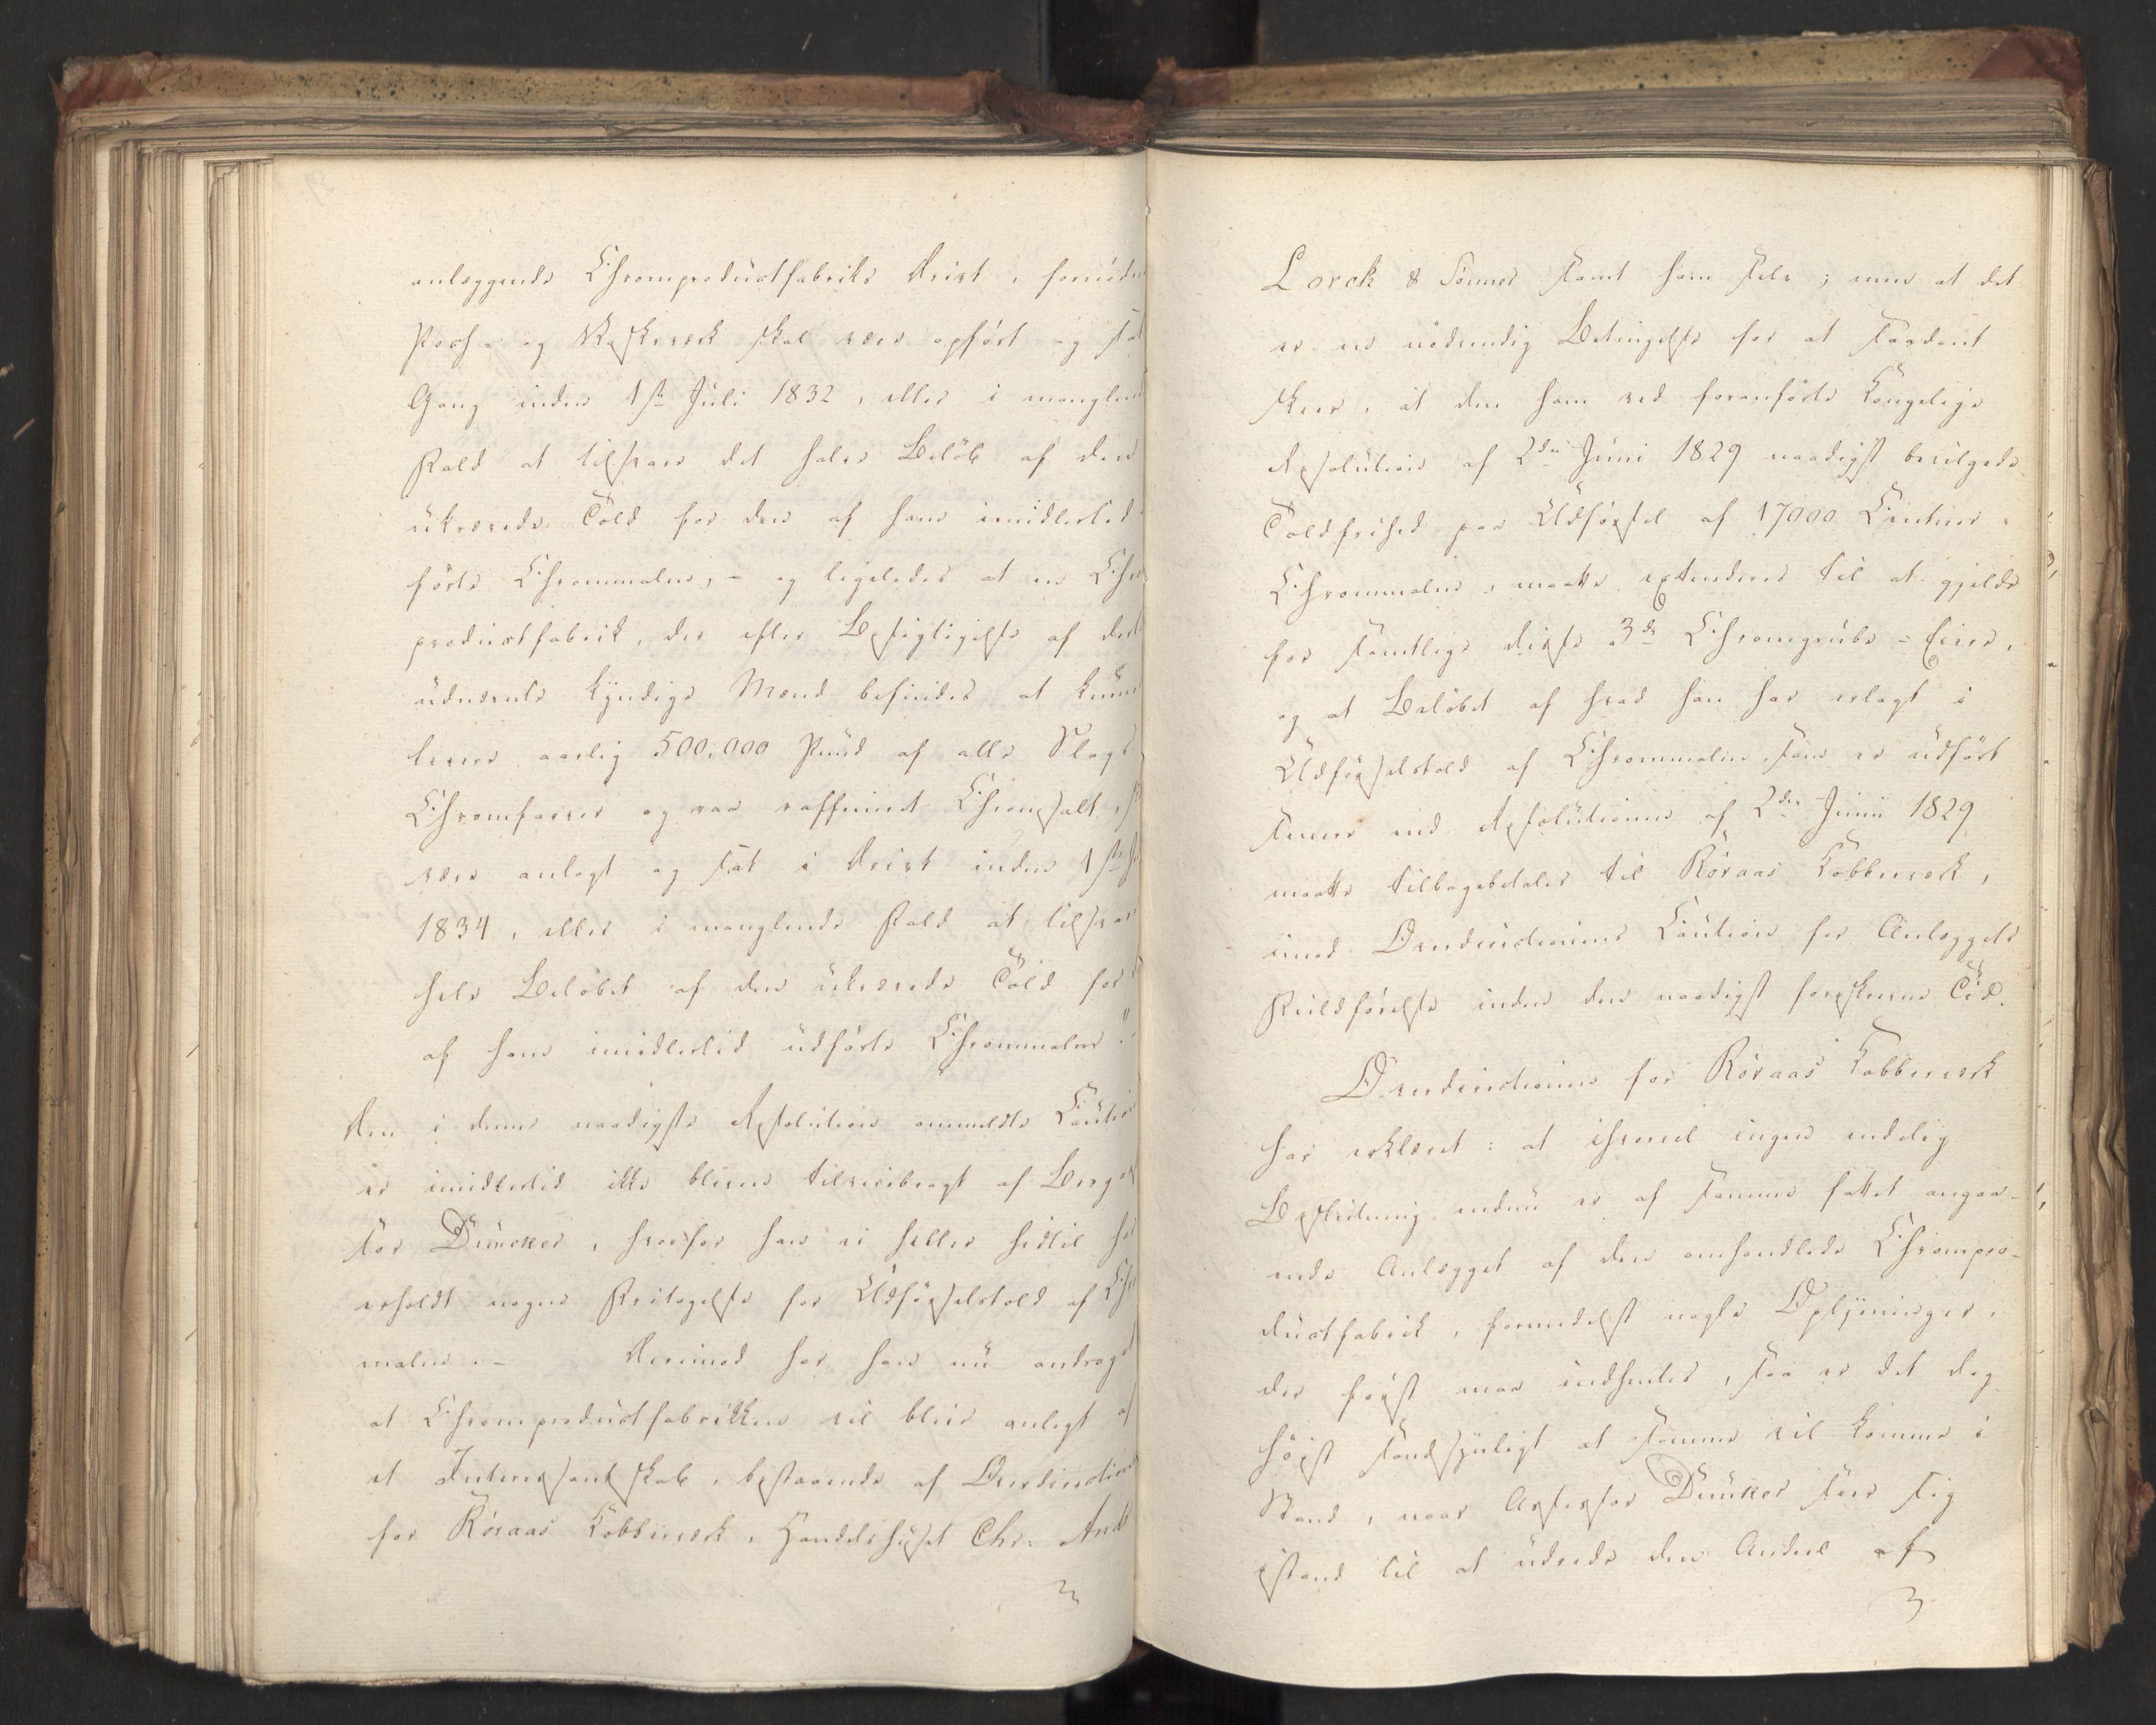 anlæggende Chromproductfabriks Drivt, fornødne
Poch- og Vaskeværk skal være opført og sat
Gang inden 1ste Juli 1832, eller i manglende
Fald at tilsvare det hele Beløb af den
ukrævede Told for den af ham imidlertid
førte Chrommalm, - og ligeledes at en Chrom
productfabrik, der efter Besigtigelse af dertil
udnævnte kyndige Mænd befindes at kunne
levere aarlig 500,000 Pund af alle Slags
Chromfarver og raa raffineret Chromsalt,
være anlagt og sat i Drivt inden 1ste
1834, eller i manglende Fald at tilsvare
hele Beløbet af den ukrævede Told for
af ham imidlertid udførte Chrommalm."
Den i denne naadigste Resolution ommeldte Caution
er imidlertid ikke bleven tilveiebragt af Berg
sor Duncker, hvorfor han ei heller hidtil har
erholdt nogen Fritagelse for Udførselstold af Chrom
malm. - Derimod har han nu andraget
at Chromproductfabrikken vil blive anlagt af
et Interessentskab, bestaaende af Overdirectionen
for Røraas Kobberværk, Handelshuset Chr. Ande
Lorck & Sønner samt ham selv; men at det
er en nødvendig Betingelse for at saadant
skeer, at den ham ved foranførte Kongelige
Resolution af 2den Juni 1829 naadigst bevilgede
Toldfrihed paa Udførsel af 17000 Centner
Chrommalm, maatte extenderes til at gjelde
for samtlige disse 3de Chromgrube-Eiere,
og at Beløbet af hvad han har erlagt i
Udførselstold af Chrommalm, som er udført
senere end Resolutionen af 2den Juni 1829
maatte tilbagebetales til Røraas Kobberværk,
imod Overdirectionens Caution for Anlæggets
Fuldførelse inden den naadigst foreskrevne Tid.
Overdirectionen for Røraas Kobberværk
har erklæret: at ihvorvel ingen endelig
Beslutning endnu er af samme fattet angaa-
ende Anlægget af den omhandlede Chrompro-
ductfabrik, formedelst nogle Oplysninger,
der først maa indhentes, saa er det dog
høist sandsynligt at samme vil komme i
Stand, naar Assessor Duncker seer sig
istand til at udrede den Andeel af